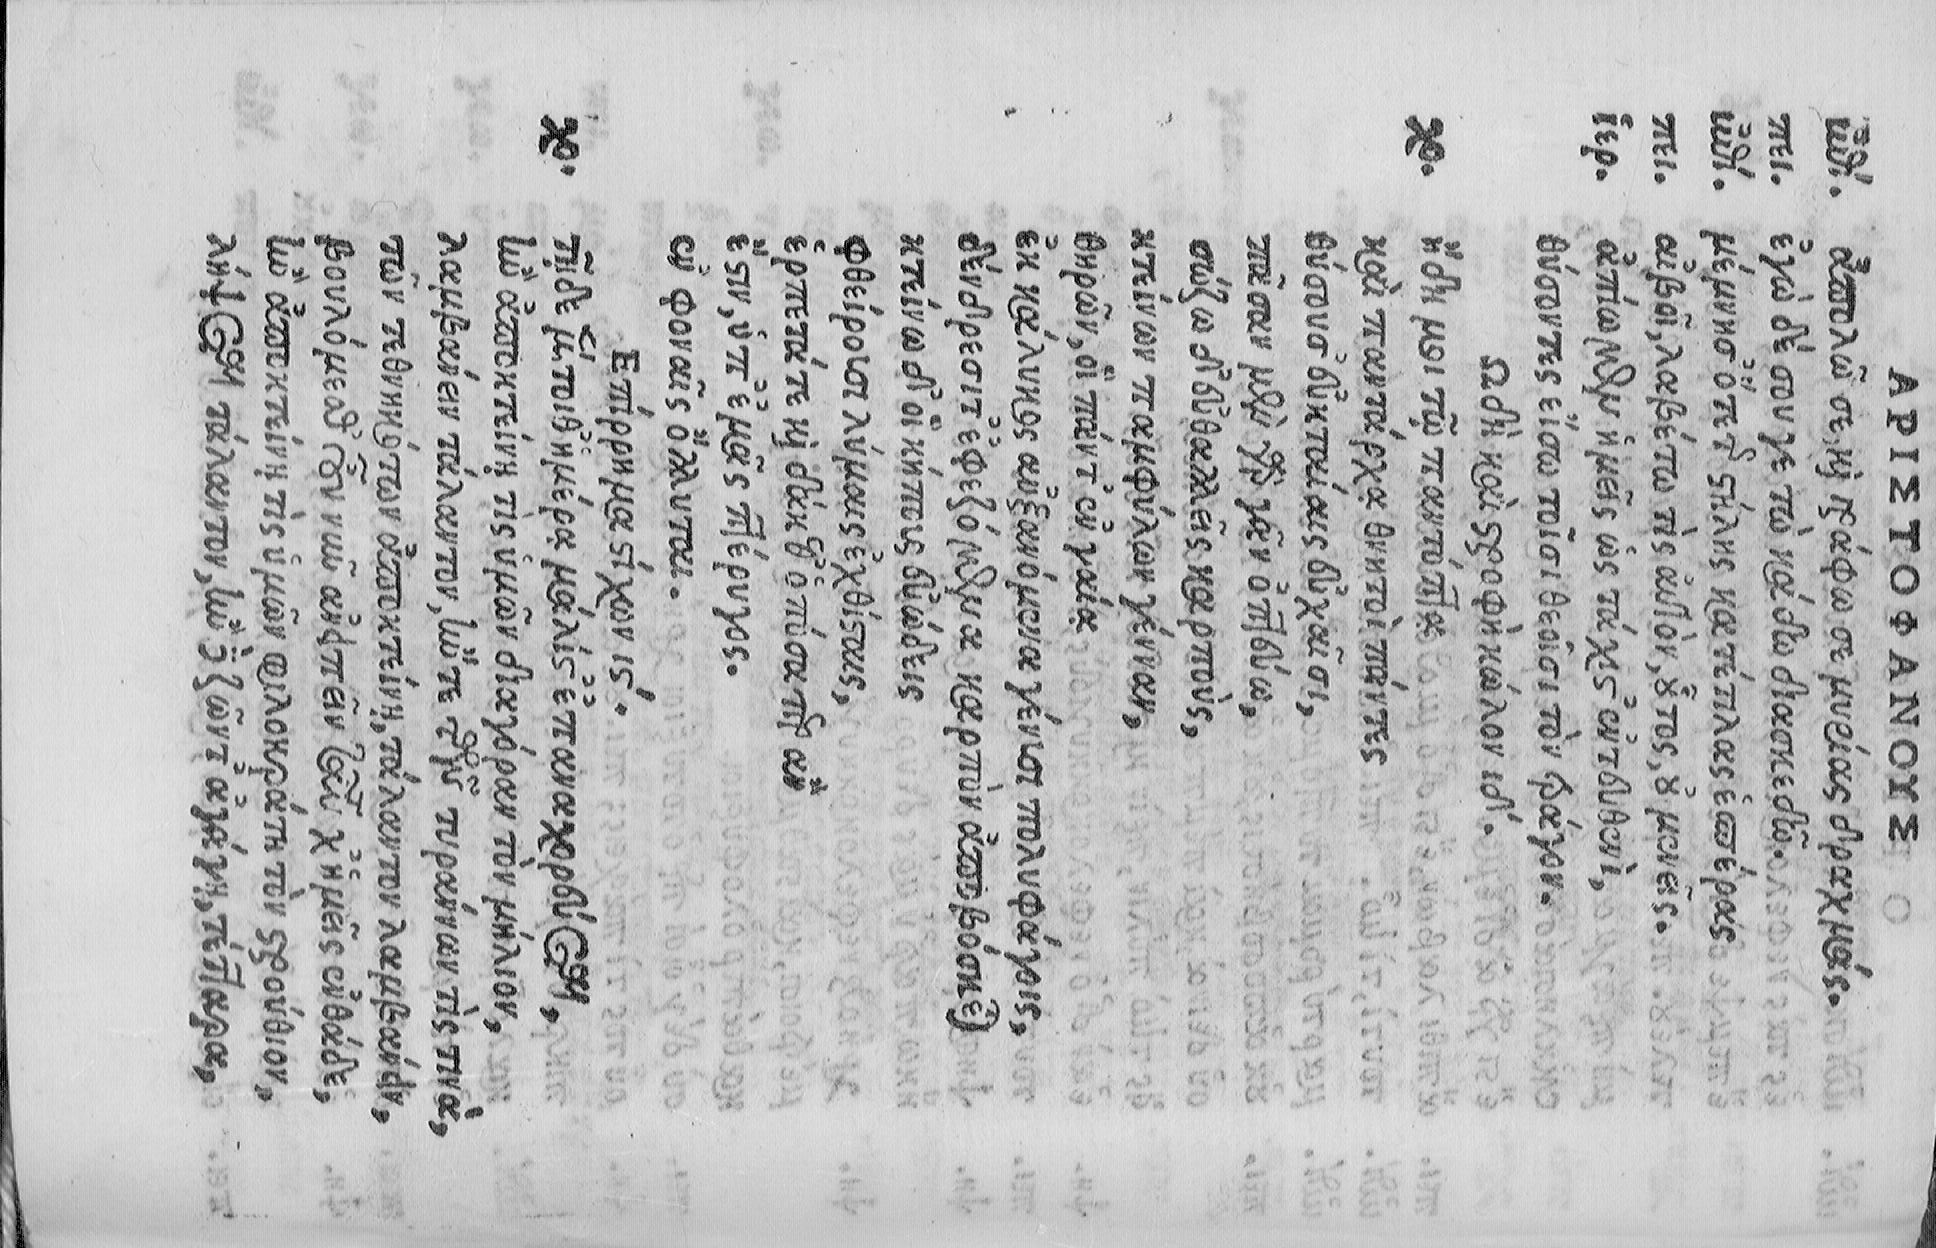 ΑΡΙΣΤΟΦΑΝΟΥΣ
ἐπί. ἀπολῶ σε, καὶ γράφω σε μυρίας δραχμάς.
πει. ἐγὼ δὲ σοῦ γε τὼ κάδω διασκεδῶ.
ἐπί. μέμνησ' ὅτε τῆς στήλης κατετίλας ἑσπέρας
πει. αἰβοῖ, λαβέτω τὶς αὐτόν, οὗτος, οὐ μενεῖς.
ἱερ. ἀπίωμεν ἡμεῖς ὡς τάχιστ' ἐντευθενί,
θύσοντες εἴσω τοῖσι θεοῖσι τὸν τράγον.
Ωδὴ καὶ στροφὴ κώλων ιδ.
χο. ἤδη μοι τῷ παντόπτᾳ
καὶ παντάρχα θνητοὶ πάντες
θύσουσ' εὐκταίαις εὐχαῖσι,
πᾶσαν μὲν γὰρ γᾶν ὀπτεύω,
σώζω δ' εὐθαλεῖς καρποὺς,
κτείνων παμφύλων γένναν,
θηρῶν, οἳ πάντ' ἐν γαίᾳ
ἐκ κάλυκος αὐξανόμενα γένυσι πολυφάγοις,
δένδρεσί τ' ἐφεζόμενα καρπὸν ἀποβόσκεται
κτείνω δ' οἳ κήπους εὐώδεις
φθείρουσι λύμαις ἐχθίσταις,
ἑρπετά τε καὶ δάκεθ' ὁπόσα περ ἂν
ἔστιν, ὑπ' ἐμᾶς πτέρυγος.
ἐν φοναῖς ὄλλυται.
Επίρρημα στίχων ις.
χο. τῇδε μέντοι θἠμέρᾳ μάλιστ' ἐπαναγορεύεται,
ἢν ἀποκτείνῃ τις ὑμῶν διαγόραν τὸν μήλιον,
λαμβάνειν τάλαντον, ἤν τε τῶν τυράννων τίς τινὰ,
τῶν τεθνηκότων ἀποκτείνῃ, τάλαντον λαμβάνειν,
βουλόμεσθ' οὖν νῦν ἀνειπεῖν ταῦτα χ' ἡμεῖς ἐνθάδε,
ἢν ἀποκτείνῃ τις ὑμῶν φιλοκράτη τὸν στρούθιον,
λήψεται τάλαντον, ἢν δὲ ζῶντ' ἀγάγῃ, τέτταρα,